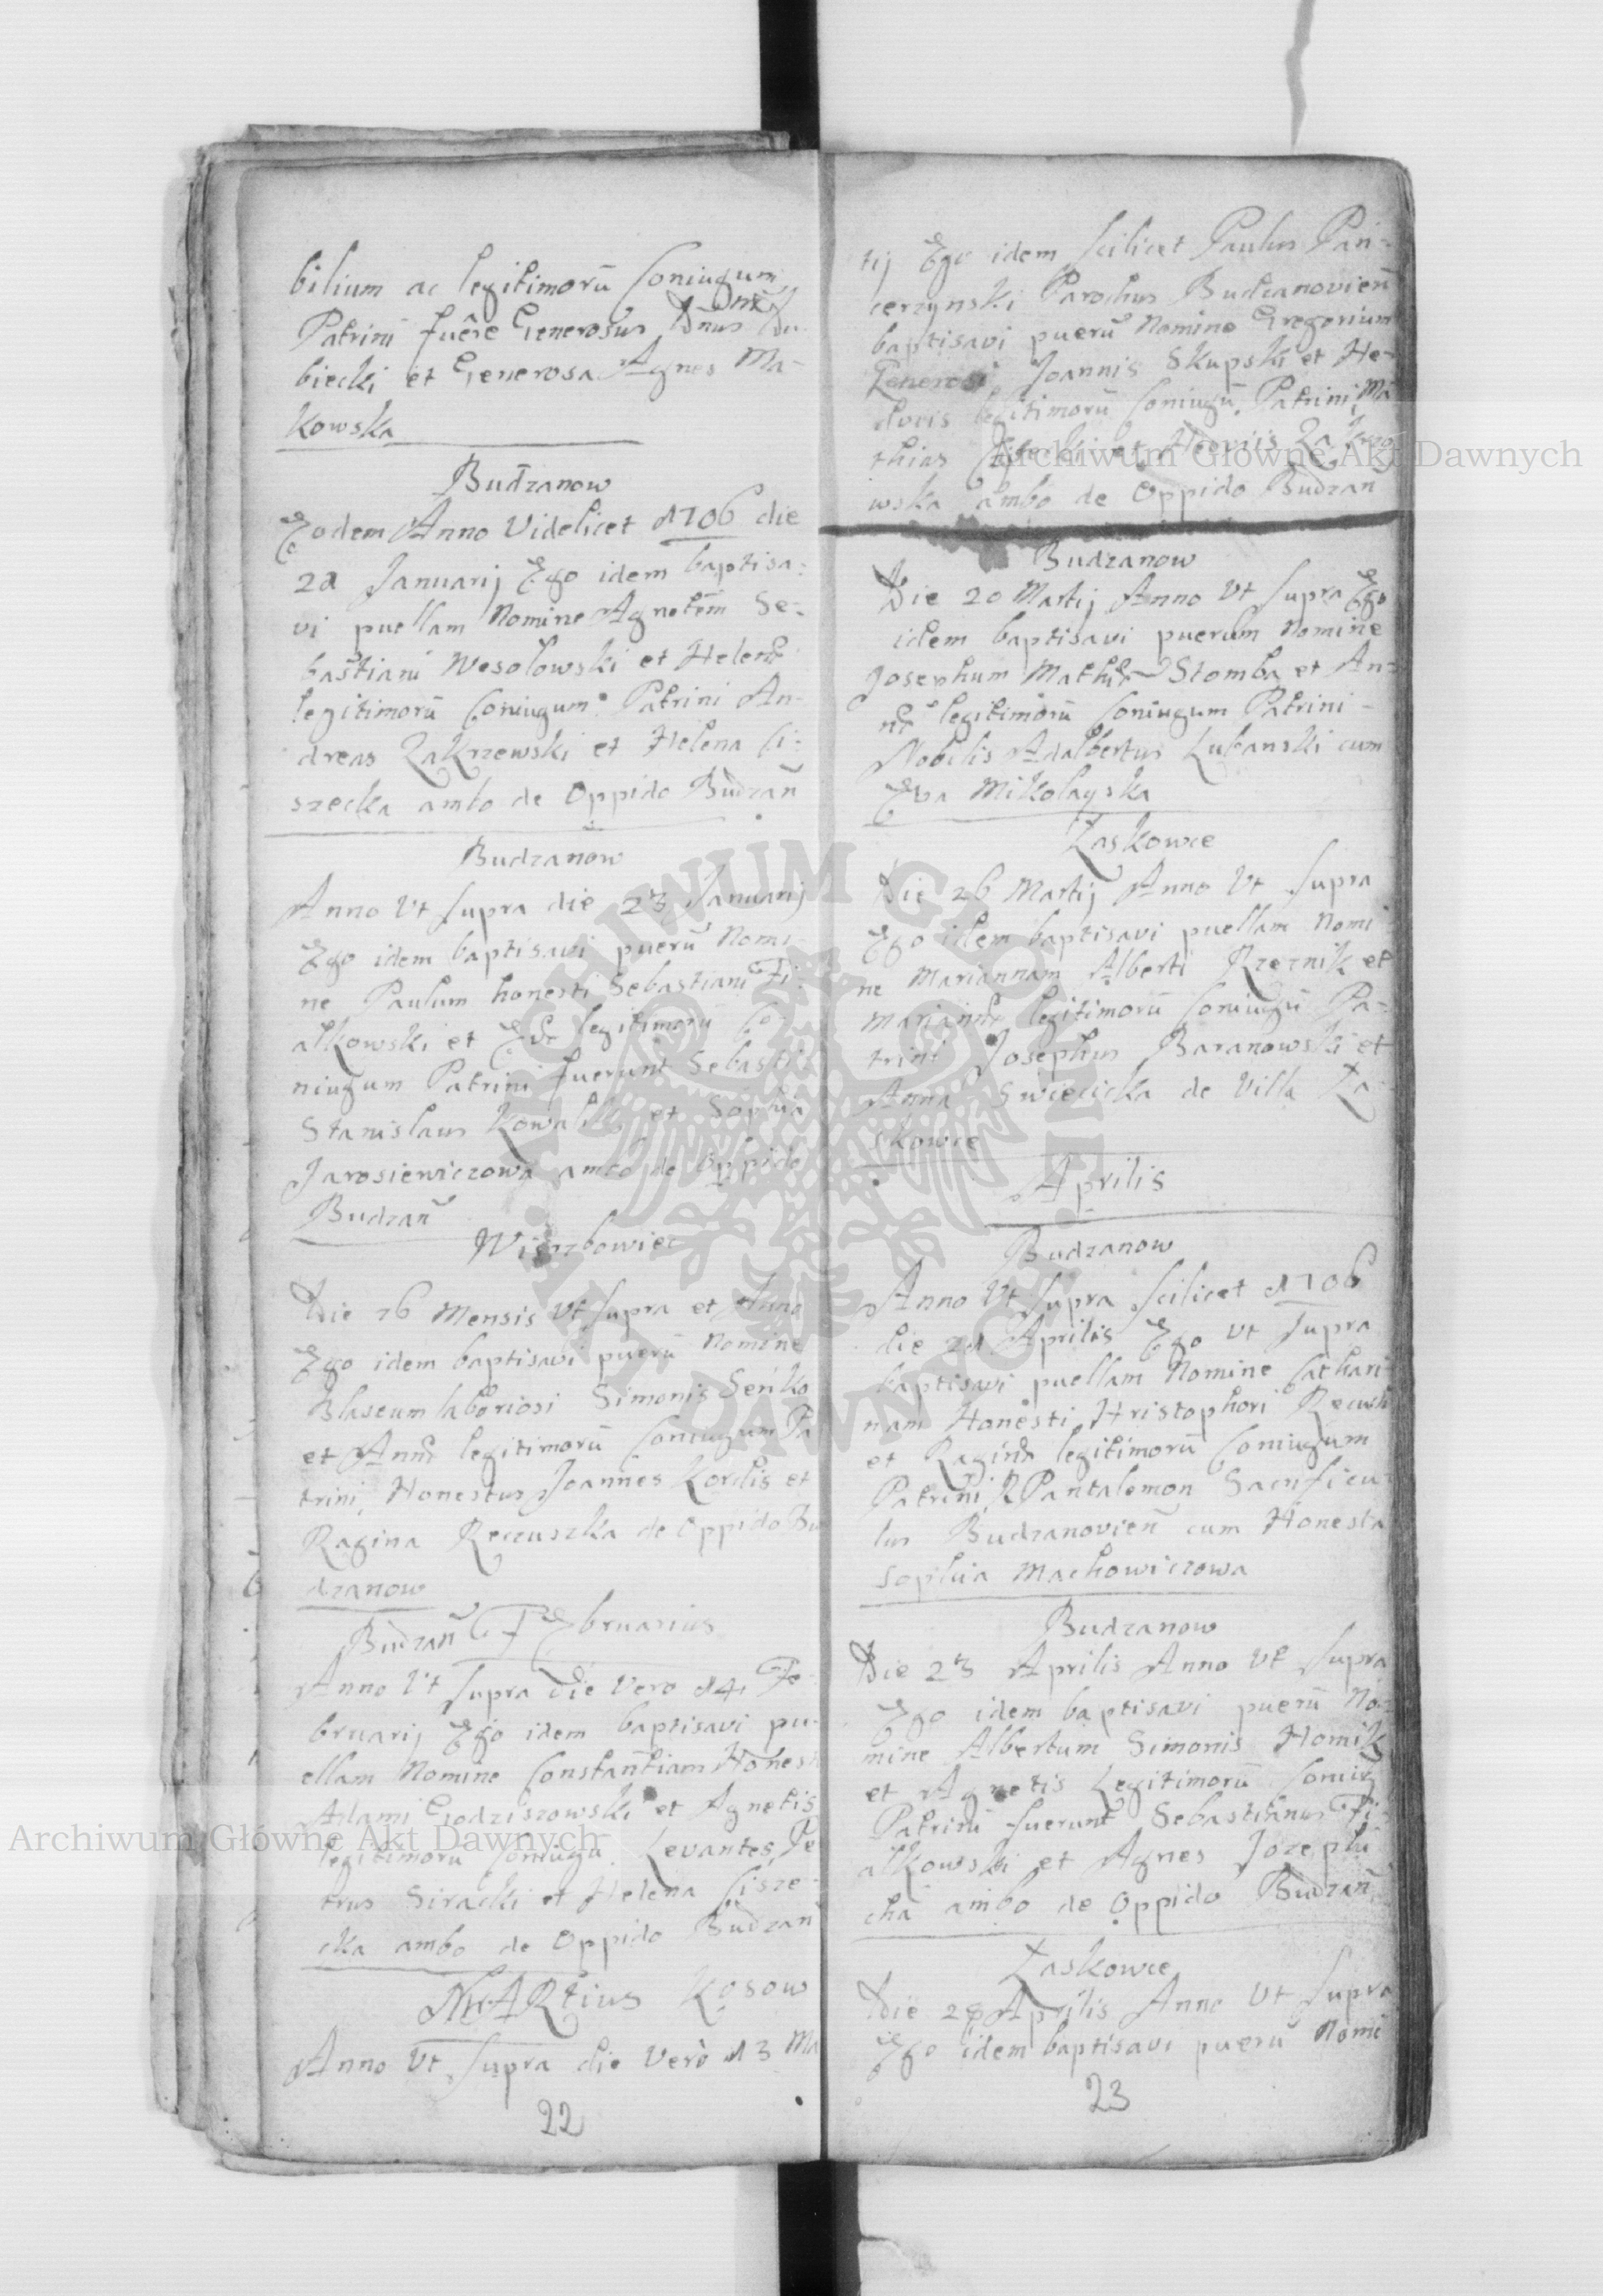 bilium ac legitimorū Coniugum
Patrini fuêre Generosus Dnus Du
biecki et Generosa Agnes Ma-
kowska
Budzanow
Eodem Anno Videlicet 1706 die
21 Januarij Ego idem baptisa-
vi puellam Nomine Agnetem Se-
bastiani Wesolowski et Helenæ
legitimorū Coniugum Patrini An-
dreas Zakrzewski et Helena Ci-
szecka ambo de Oppido Budzan̄
Budzanow
Anno Vt supra die 23 Januarij
Ego idem baptisavi puerū Nomi-
ne Paulum honesti Sebastiani Fi-
alkowski et Evæ legitimorū Co-
niugum Patrini fuerunt Sebasti
Stanislaus Kowalik et Sophia
Jarosiewiczowa ambo de Oppido
Budzan̄
Wierzbowiec
Die 26 Mensis Vt supra et Anno
Ego idem baptisavi puerū Nomine
Blaseum laboriosi Simonis Seńko
et Annæ legitimorū Coniugum Pa
trini Honestus Joannes Kordis et
Ragina Reczuszka de Oppido Bu
dzanow
Budzan̄ FEbruarius
Anno Vt supra Die Vero 14 Fe-
bruarij Ego idem baptisavi pu-
ellam Nomine Constantiam Honesti
Adami Godziszowski et Agnetis
legitimorū Coniugū Levantes Pe
trus Siracki et Helena Cisze-
cka ambo de Oppido Budzan̄
MARtius Kosow
Anno Vt supra die Verò 13 Ma
22
tij Ego idem scilicet Paulus Pan-
cerzynski Parochus Budzanovien̄
baptisavi puerū Nomine Gregorium
Generosi Joannis Skupski et He-
dvvis legitimorū Coniugū Patrini Ma
thias et Hedviis Zakrze
wska ambo de Oppido Budzan̄
Budzanow
Die 20 Martij Anno Vt supra Ego
idem baptisavi puerum Nomine
Josephum Mathiæ Stomba et An-
næ legitimorū Coniugum Patrini
Nobilis Adalbertus Lubanski cum
Eva Mikolayska
Laskowce
Die 26 Martij Anno Vt supra
Ego idem baptisavi puellam Nomi
ne Mariannam Alberti Rzeznik et
Mariannæ legitimorū Coniugū Pa-
trini Josephus Baranowski et
Anna Swiecicka de Villa La-
skowce
Aprilis
Budzanow
Anno Vt supra scilicet 1706
die 21 Aprilis Ego Vt supra
baptisavi puellam Nomine Cathari
nam Honesti Hristophori
et Raginæ legitimorū Coniugum
Patrini R Pantalemon Sacrificu-
lus Budzanovien̄ cum Honesta
Sophia Machowiczowa
Budzanow
Die 23 Aprilis Anno Vt supra
Ego idem baptisavi puerū No-
mine Albertum Simonis Homik
et Agnetis Legitimorū Coniug
Patrini fuerunt Sebastianus Fi-
alkowski et Agnes Jozephi
cha ambo de Oppido Budzan̄
Laskowce
Die 28 Aprilis Anno Vt supra
Ego idem baptisavi puerū Nomi
23
Archiwum Główne Akt Dawnych
Archiwum Główne Akt Dawnych
ARCHIWUM GŁÓWNE
AKT DAWNYCH